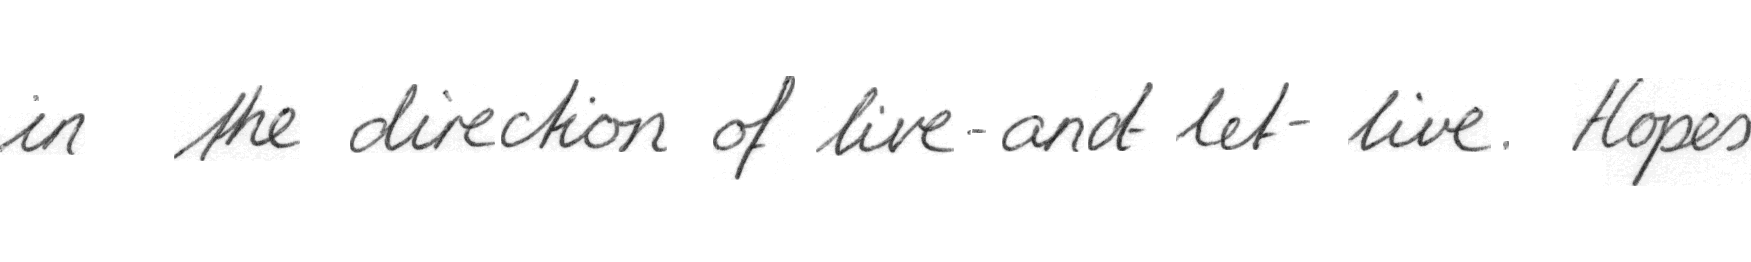 in the direction of live-and-let-live. Hopes